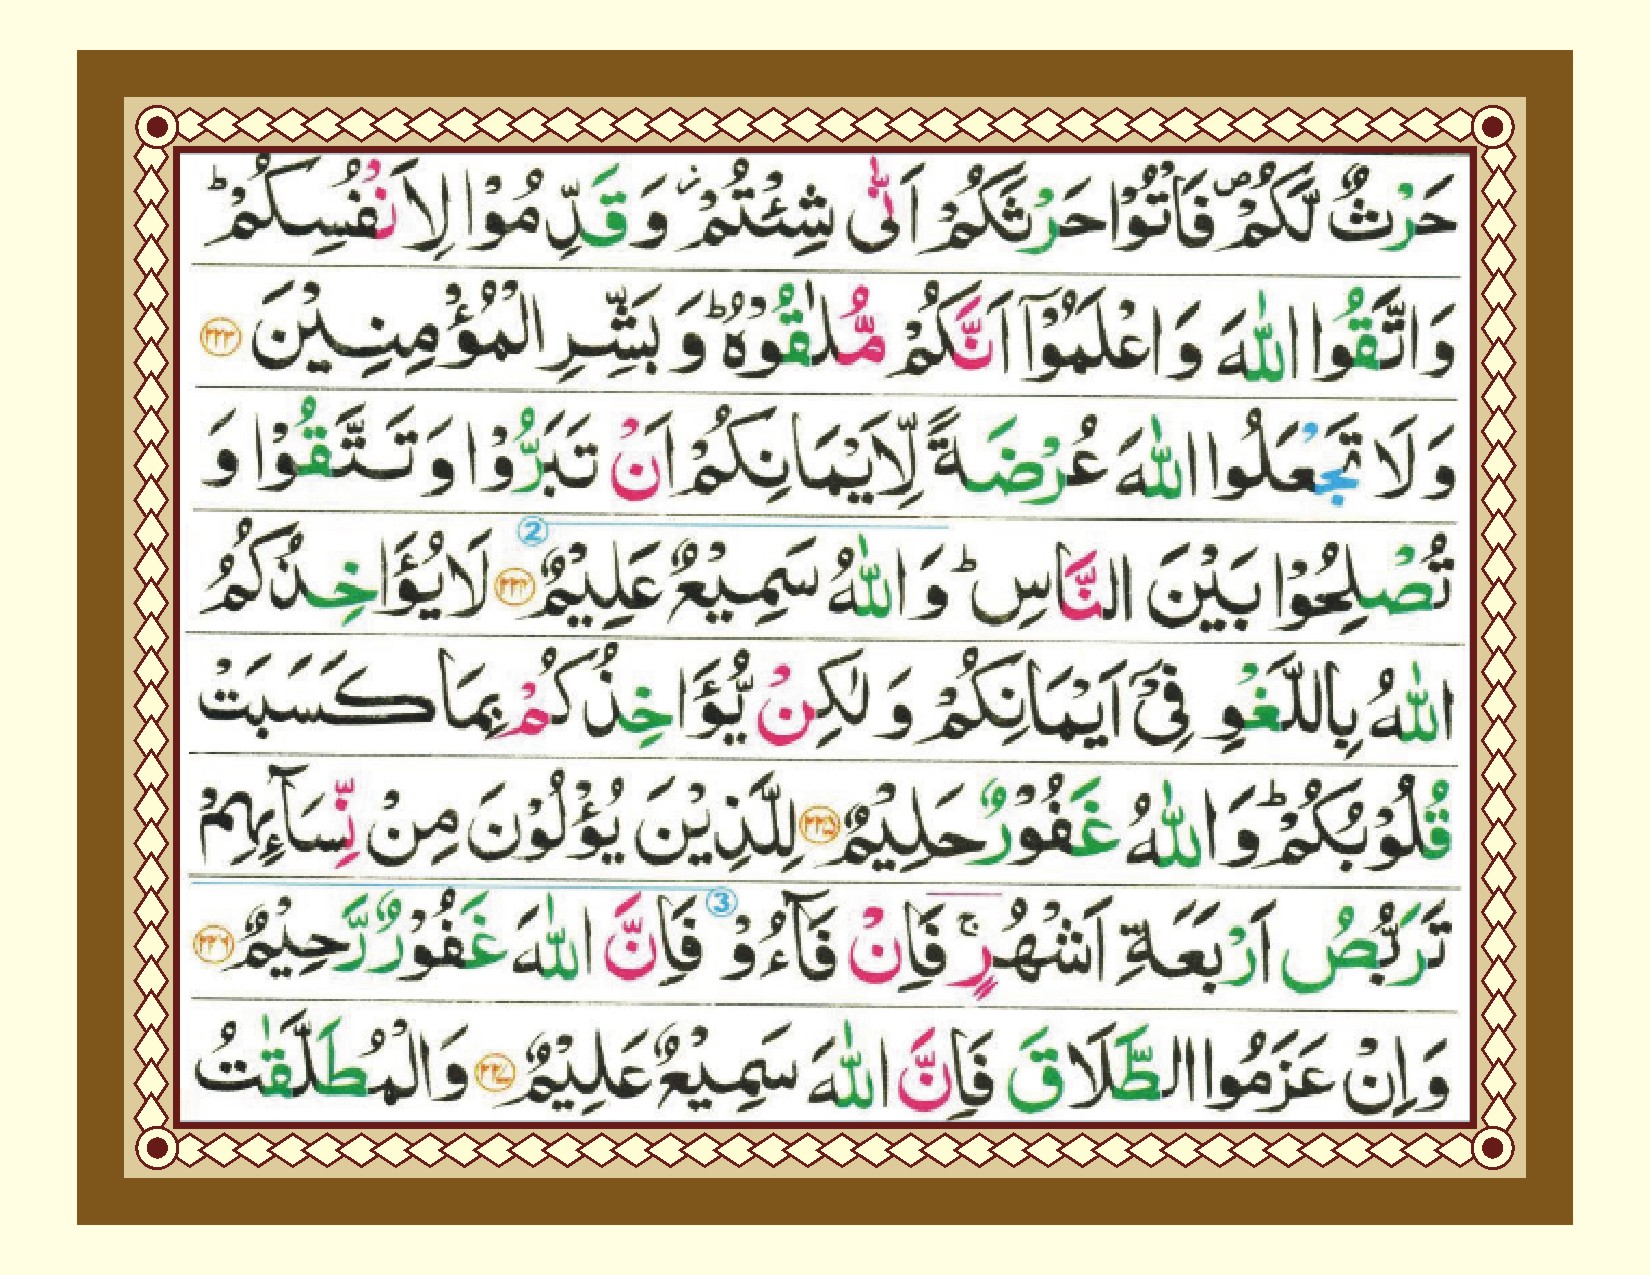 حَرْثٌ لَّكُمْ ۪ فَاْتُوْا حَرْثَكُمْ اَنّٰی شِئْتُمْ ؗ وَ قَدِّمُوْا لِاَنْفُسِكُمْ ؕ
وَاتَّقُوا اللّٰهَ وَ اعْلَمُوْۤا اَنَّكُمْ مُّلٰقُوْهُ ؕ وَ بَشِّرِ الْمُؤْمِنِیْنَ ۲۲۳
وَ لَا تَجْعَلُوا اللّٰهَ عُرْضَةً لِّاَیْمَانِكُمْ اَنْ تَبَرُّوْا وَ تَتَّقُوْا وَ
تُصْلِحُوْا بَیْنَ النَّاسِ ؕ وَ اللّٰهُ سَمِیْعٌ عَلِیْمٌ ۲۲۴ 2 لَا یُؤَاخِذُكُمُ
اللّٰهُ بِاللَّغْوِ فِیْۤ اَیْمَانِكُمْ وَ لٰكِنْ یُّؤَاخِذُكُمْ بِمَا كَسَبَتْ
قُلُوْبُكُمْ ؕ وَ اللّٰهُ غَفُوْرٌ حَلِیْمٌ ۲۲۵ لِلَّذِیْنَ یُؤْلُوْنَ مِنْ نِّسَآىِٕهِمْ
تَرَبُّصُ اَرْبَعَةِ اَشْهُرٍ ۚ فَاِنْ فَآءُوْ 3 فَاِنَّ اللّٰهَ غَفُوْرٌ رَّحِیْمٌ ۲۲۶
وَ اِنْ عَزَمُوا الطَّلَاقَ فَاِنَّ اللّٰهَ سَمِیْعٌ عَلِیْمٌ ۲۲۷ وَ الْمُطَلَّقٰتُ